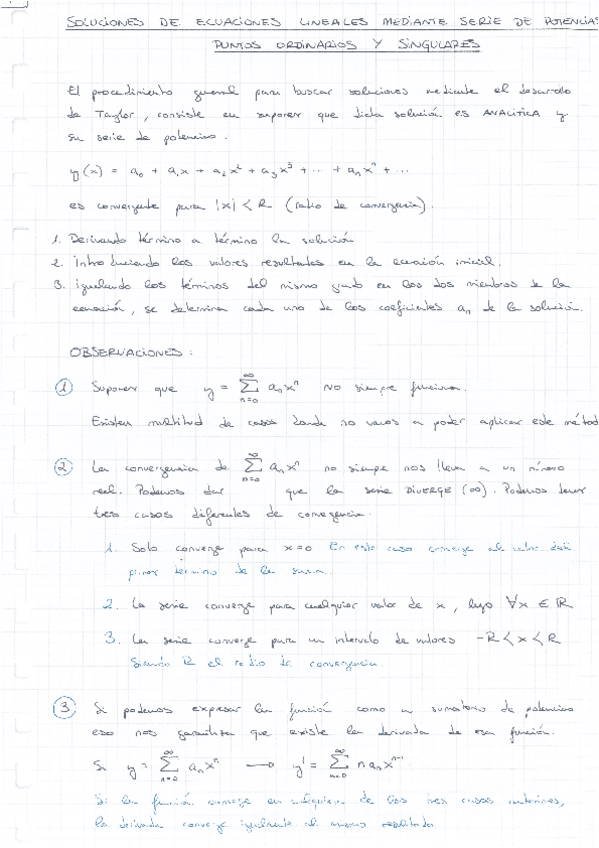 SOLUCIONES DE ECUACIONES LINEALES MEDIANTE SERIE DE POTENCIAS
PUNTOS ORDINARIOS Y SINGULARES
El procedimiento general para buscar soluciones mediante el desarrollo
de Taylor, consiste en suponer que dicha solución es ANALÍTICA y
su serie de potencias.
y(x) = a₀ + a₁x + a₂x² + a₃x³ + ... + aₙxⁿ + ...
es convergente para |x| < R (ratio de convergencia).
1. Derivando término a término la solución
2. Introduciendo los valores resultantes en la ecuación inicial.
3. igualando los términos del mismo grado en los dos miembros de la
ecuación, se determina cada uno de los coeficientes aₙ de la solución.
OBSERVACIONES:
① Suponer que y = ∑_{n=0}^{∞} aₙxⁿ no siempre funciona.
Existen multitud de casos donde no vamos a poder aplicar este métod
② La convergencia de ∑_{n=0}^{∞} aₙxⁿ no siempre nos lleva a un número
real. Podemos dar que la serie DIVERGE (∞). Podemos tener
tres casos diferentes de convergencia.
1. Solo converge para x=0 En este caso converge al valor del
primer término de la suma.
2. La serie converge para cualquier valor de x, luego ∀x ∈ R
3. La serie converge para un intervalo de valores -R < x < R
Siendo R el radio de convergencia
③ Si podemos expresar la función como un sumatorio de potencias
eso nos garantiza que existe la derivada de esa función.
Si y = ∑_{n=0}^{∞} aₙxⁿ → y' = ∑_{n=0}^{∞} n aₙxⁿ⁻¹
Si la función converge en cualquiera de los tres casos anteriores,
la derivada converge igualmente al mismo resultado.